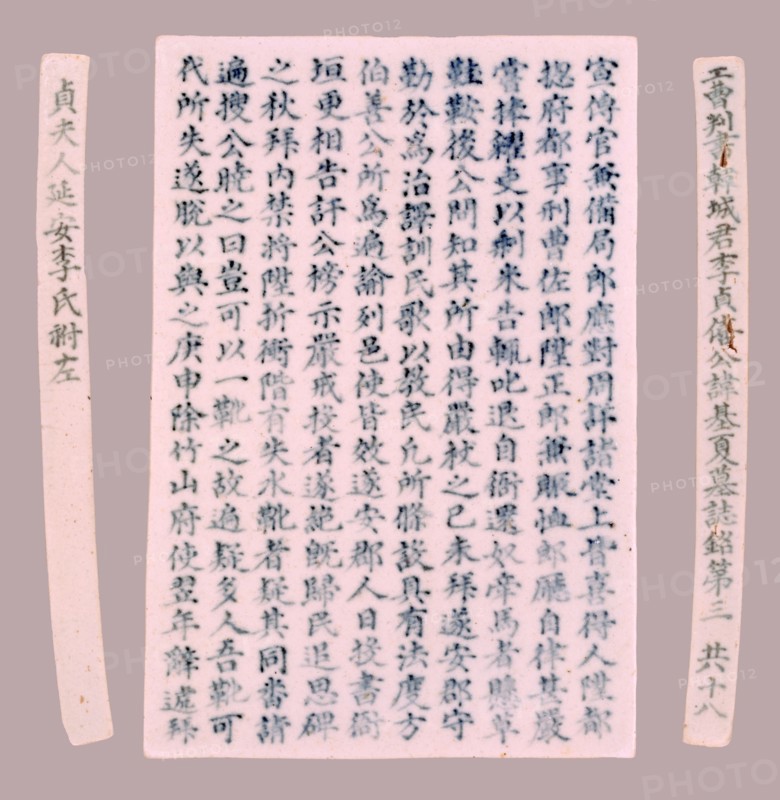 工曹判書韓城君李貞僖公諱基夏墓誌銘第三 共十八
宣傳官兼備局郎應對周詳諸堂上皆喜得人陞都
摠府都事刑曹佐郎陞正郎兼賑恤郎廳自律甚嚴
嘗捧糶吏以剩米告輒叱退自衙還奴牽馬者懸草
鞋鞍後公問知其所由得嚴杖之己未拜遂安郡守
勤於爲治譯訓民歌以教民凡所條設具有法度方
伯善公所爲遍諭列邑使皆效遂安郡人日投書衙
垣更相告訐公榜示嚴戒投者遂絶旣歸民追思碑
之秋拜內禁將陞折衝階有失水靴者疑其同番請
遍搜公曉之曰豈可以一靴之故遍疑多人吾靴可
代所失遂脫以與之庚申除竹山府使翌年辭遞拜
貞夫人延安李氏祔左
PHOTO12